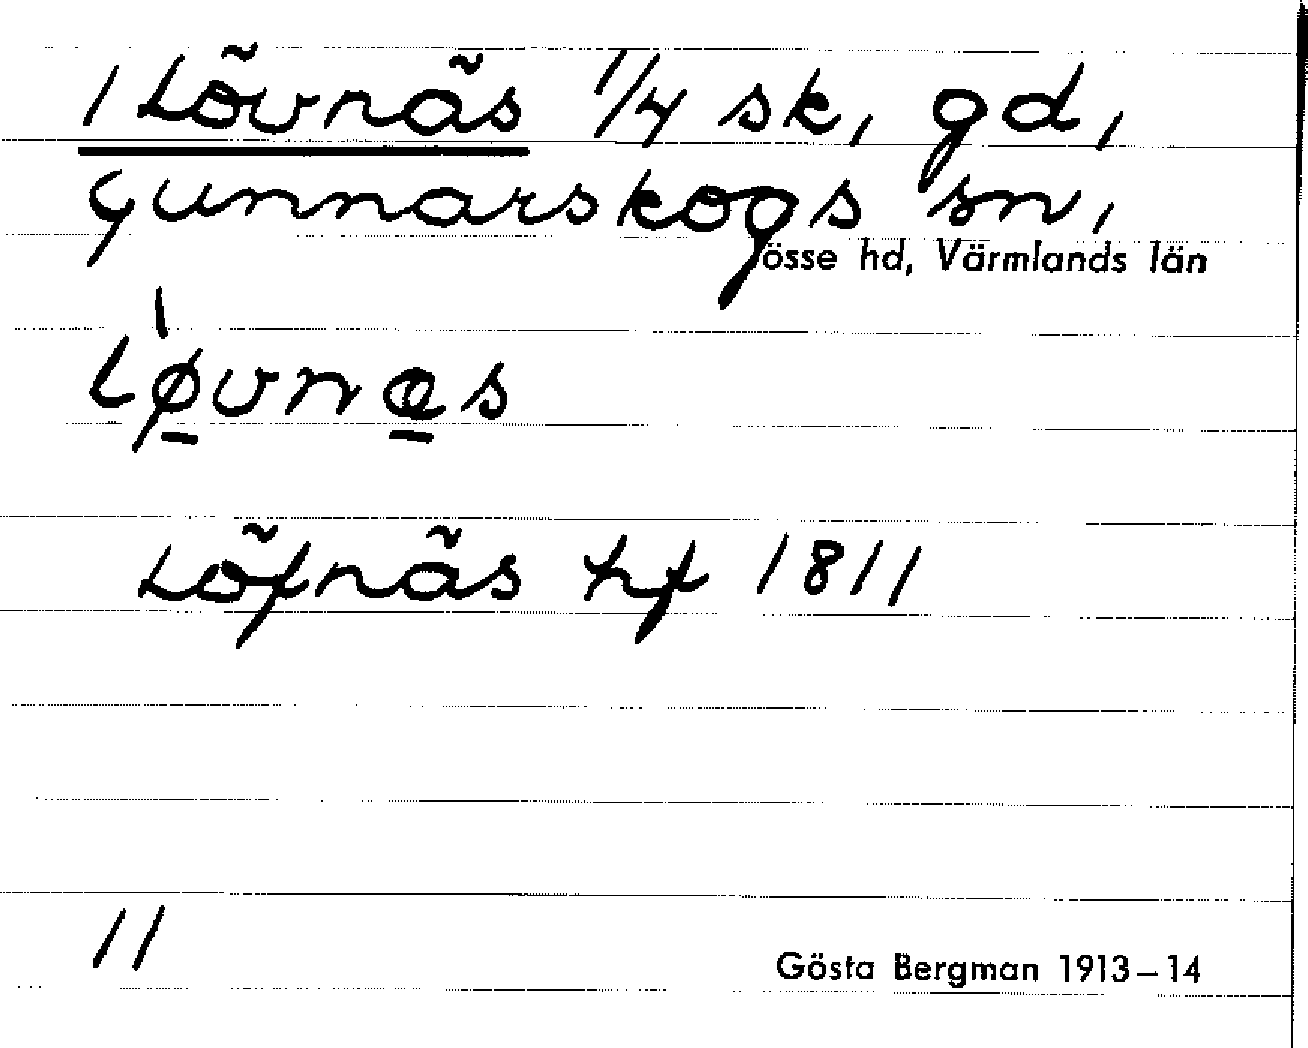 1 Lövnäs 1/4 sk, gd,
Gunnarskogs sn,
Jösse hd, Värmlands län
lø̠vnɑ̠s
Löfnäs hf 1811
11
Gösta Bergman 1913–14